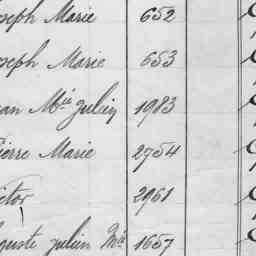 oseph Marie 652
oseph Marie 653
ean Mie Julien 1983
Pierre Marie 2754
ictor 2961
uguste Julien Mie 1657